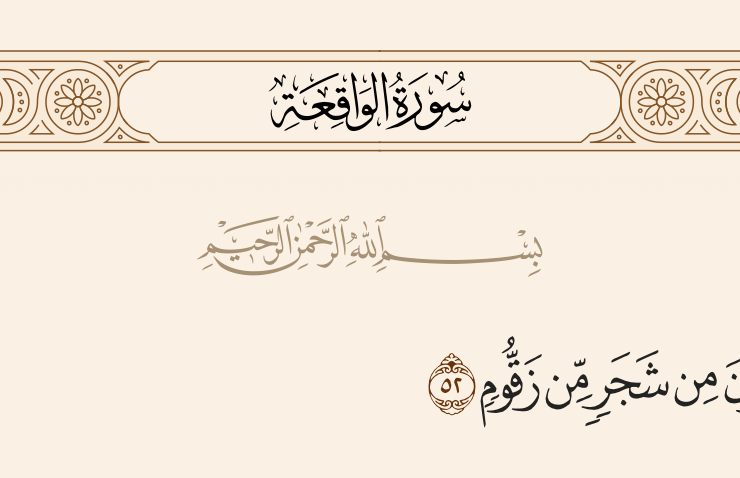 سُورَةُ الوَاقِعَةِ
بِسْمِ اللَّهِ الرَّحْمَٰنِ الرَّحِيمِ
مِن شَجَرٍ مِّن زَقُّومٍ ٥٢